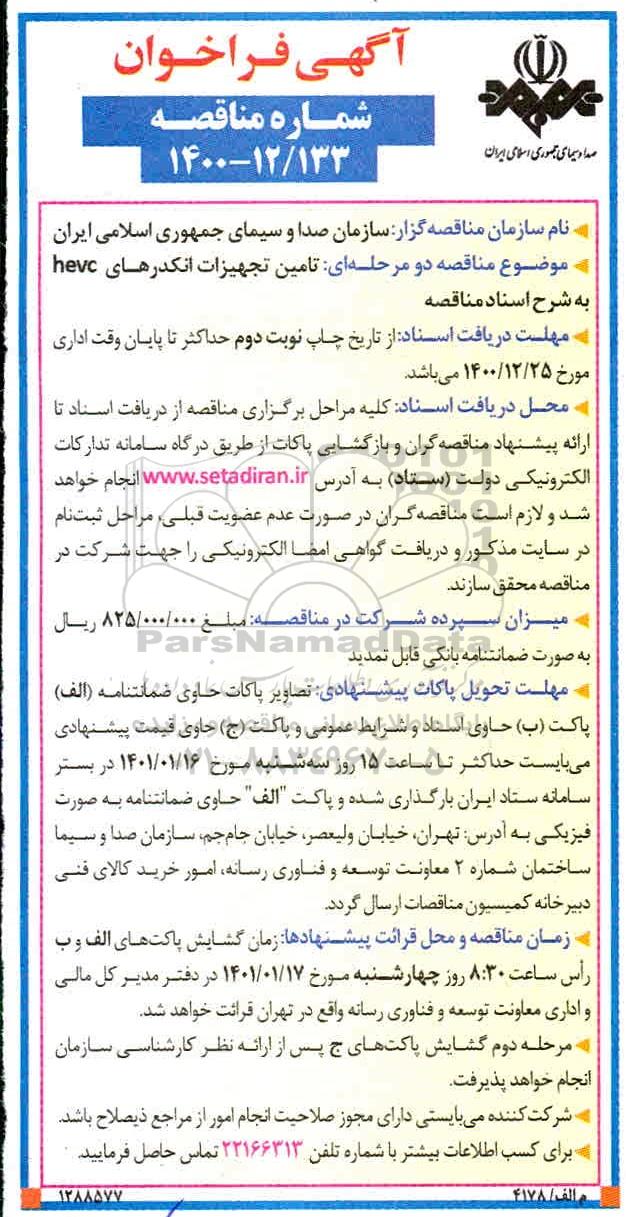 آگهی فراخوان
شماره مناقصه
۱۴۰۰-۱۲/۱۳۳
صدا و سیمای جمهوری اسلامی ایران
نام سازمان مناقصه‌گزار: سازمان صدا و سیمای جمهوری اسلامی ایران
موضوع مناقصه دو مرحله‌ای: تامین تجهیزات انکدرهای hevc
به شرح اسناد مناقصه
مهلت دریافت اسناد: از تاریخ چاپ نوبت دوم حداکثر تا پایان وقت اداری
مورخ ۱۴۰۰/۱۲/۲۵ می‌باشد.
محل دریافت اسناد: کلیه مراحل برگزاری مناقصه از دریافت اسناد تا
ارائه پیشنهاد مناقصه‌گران و بازگشایی پاکات از طریق درگاه سامانه تدارکات
الکترونیکی دولت (ستاد) به آدرس www.setadiran.ir انجام خواهد
شد و لازم است مناقصه‌گران در صورت عدم عضویت قبلی، مراحل ثبت‌نام
در سایت مذکور و دریافت گواهی امضا الکترونیکی را جهت شرکت در
مناقصه محقق سازند.
میزان سپرده شرکت در مناقصه: مبلغ ۸۲۵/۰۰۰/۰۰۰ ریال
ParsNamadData
به صورت ضمانتنامه بانکی قابل تمدید
مهلت تحویل پاکات پیشنهادی: تصاویر پاکات حاوی ضمانتنامه (الف)
پاکت (ب) حاوی اسناد و شرایط عمومی و پاکت (ج) حاوی قیمت پیشنهادی
می‌بایست حداکثر تا ساعت ۱۵ روز سه‌شنبه مورخ ۱۴۰۱/۰۱/۱۶ در بستر
۰۲۱-۸۸۳۴۹۶۷۰-۵
سامانه ستاد ایران بارگذاری شده و پاکت "الف" حاوی ضمانتنامه به صورت
فیزیکی به آدرس: تهران، خیابان ولیعصر، خیابان جام‌جم، سازمان صدا و سیما
ساختمان شماره ۲ معاونت توسعه و فناوری رسانه، امور خرید کالای فنی
دبیرخانه کمیسیون مناقصات ارسال گردد.
زمان مناقصه و محل قرائت پیشنهادها: زمان گشایش پاکت‌های الف و ب
رأس ساعت ۸:۳۰ روز چهارشنبه مورخ ۱۴۰۱/۰۱/۱۷ در دفتر مدیر کل مالی
و اداری معاونت توسعه و فناوری رسانه واقع در تهران قرائت خواهد شد.
مرحله دوم گشایش پاکت‌های ج پس از ارائه نظر کارشناسی سازمان
انجام خواهد پذیرفت.
شرکت‌کننده می‌بایستی دارای مجوز صلاحیت انجام امور از مراجع ذیصلاح باشد.
برای کسب اطلاعات بیشتر با شماره تلفن ۲۲۱۶۶۳۱۳ تماس حاصل فرمایید.
م الف/ ۴۱۷۸
۱۲۸۸۵۷۷